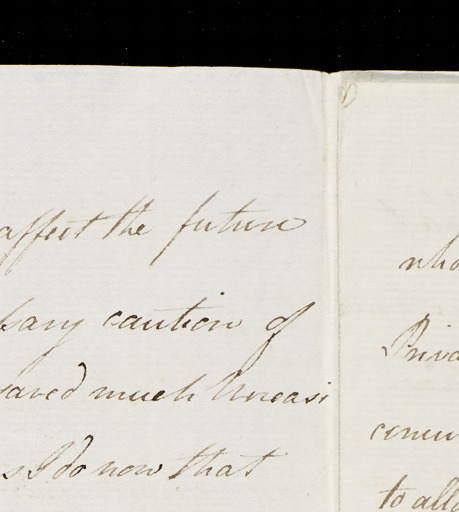 affect the future
sary caution of
saved much Uneasi
s I do now that
who
Priva
to allo